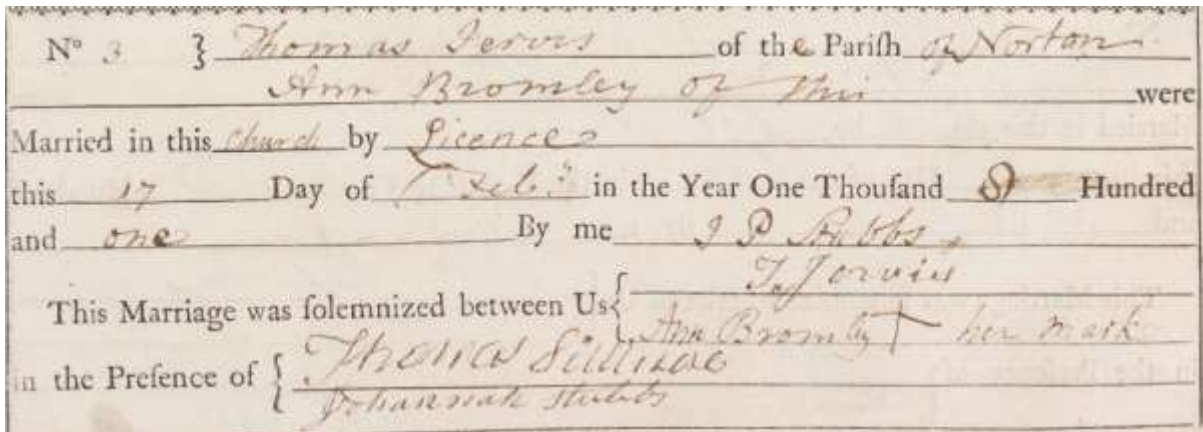 N° 3 } Thomas Jervis of the Pariſh of Norton
Ann Bromley of this were
Married in this Church by Licence
this 17 Day of Feb. in the Year One Thouſand 8 Hundred
and one By me J P Stubbs
This Marriage was ſolemnized between Us { T Jervis
Ann Bromley + her mark
in the Preſence of { Thomas
Johannah Stubbs